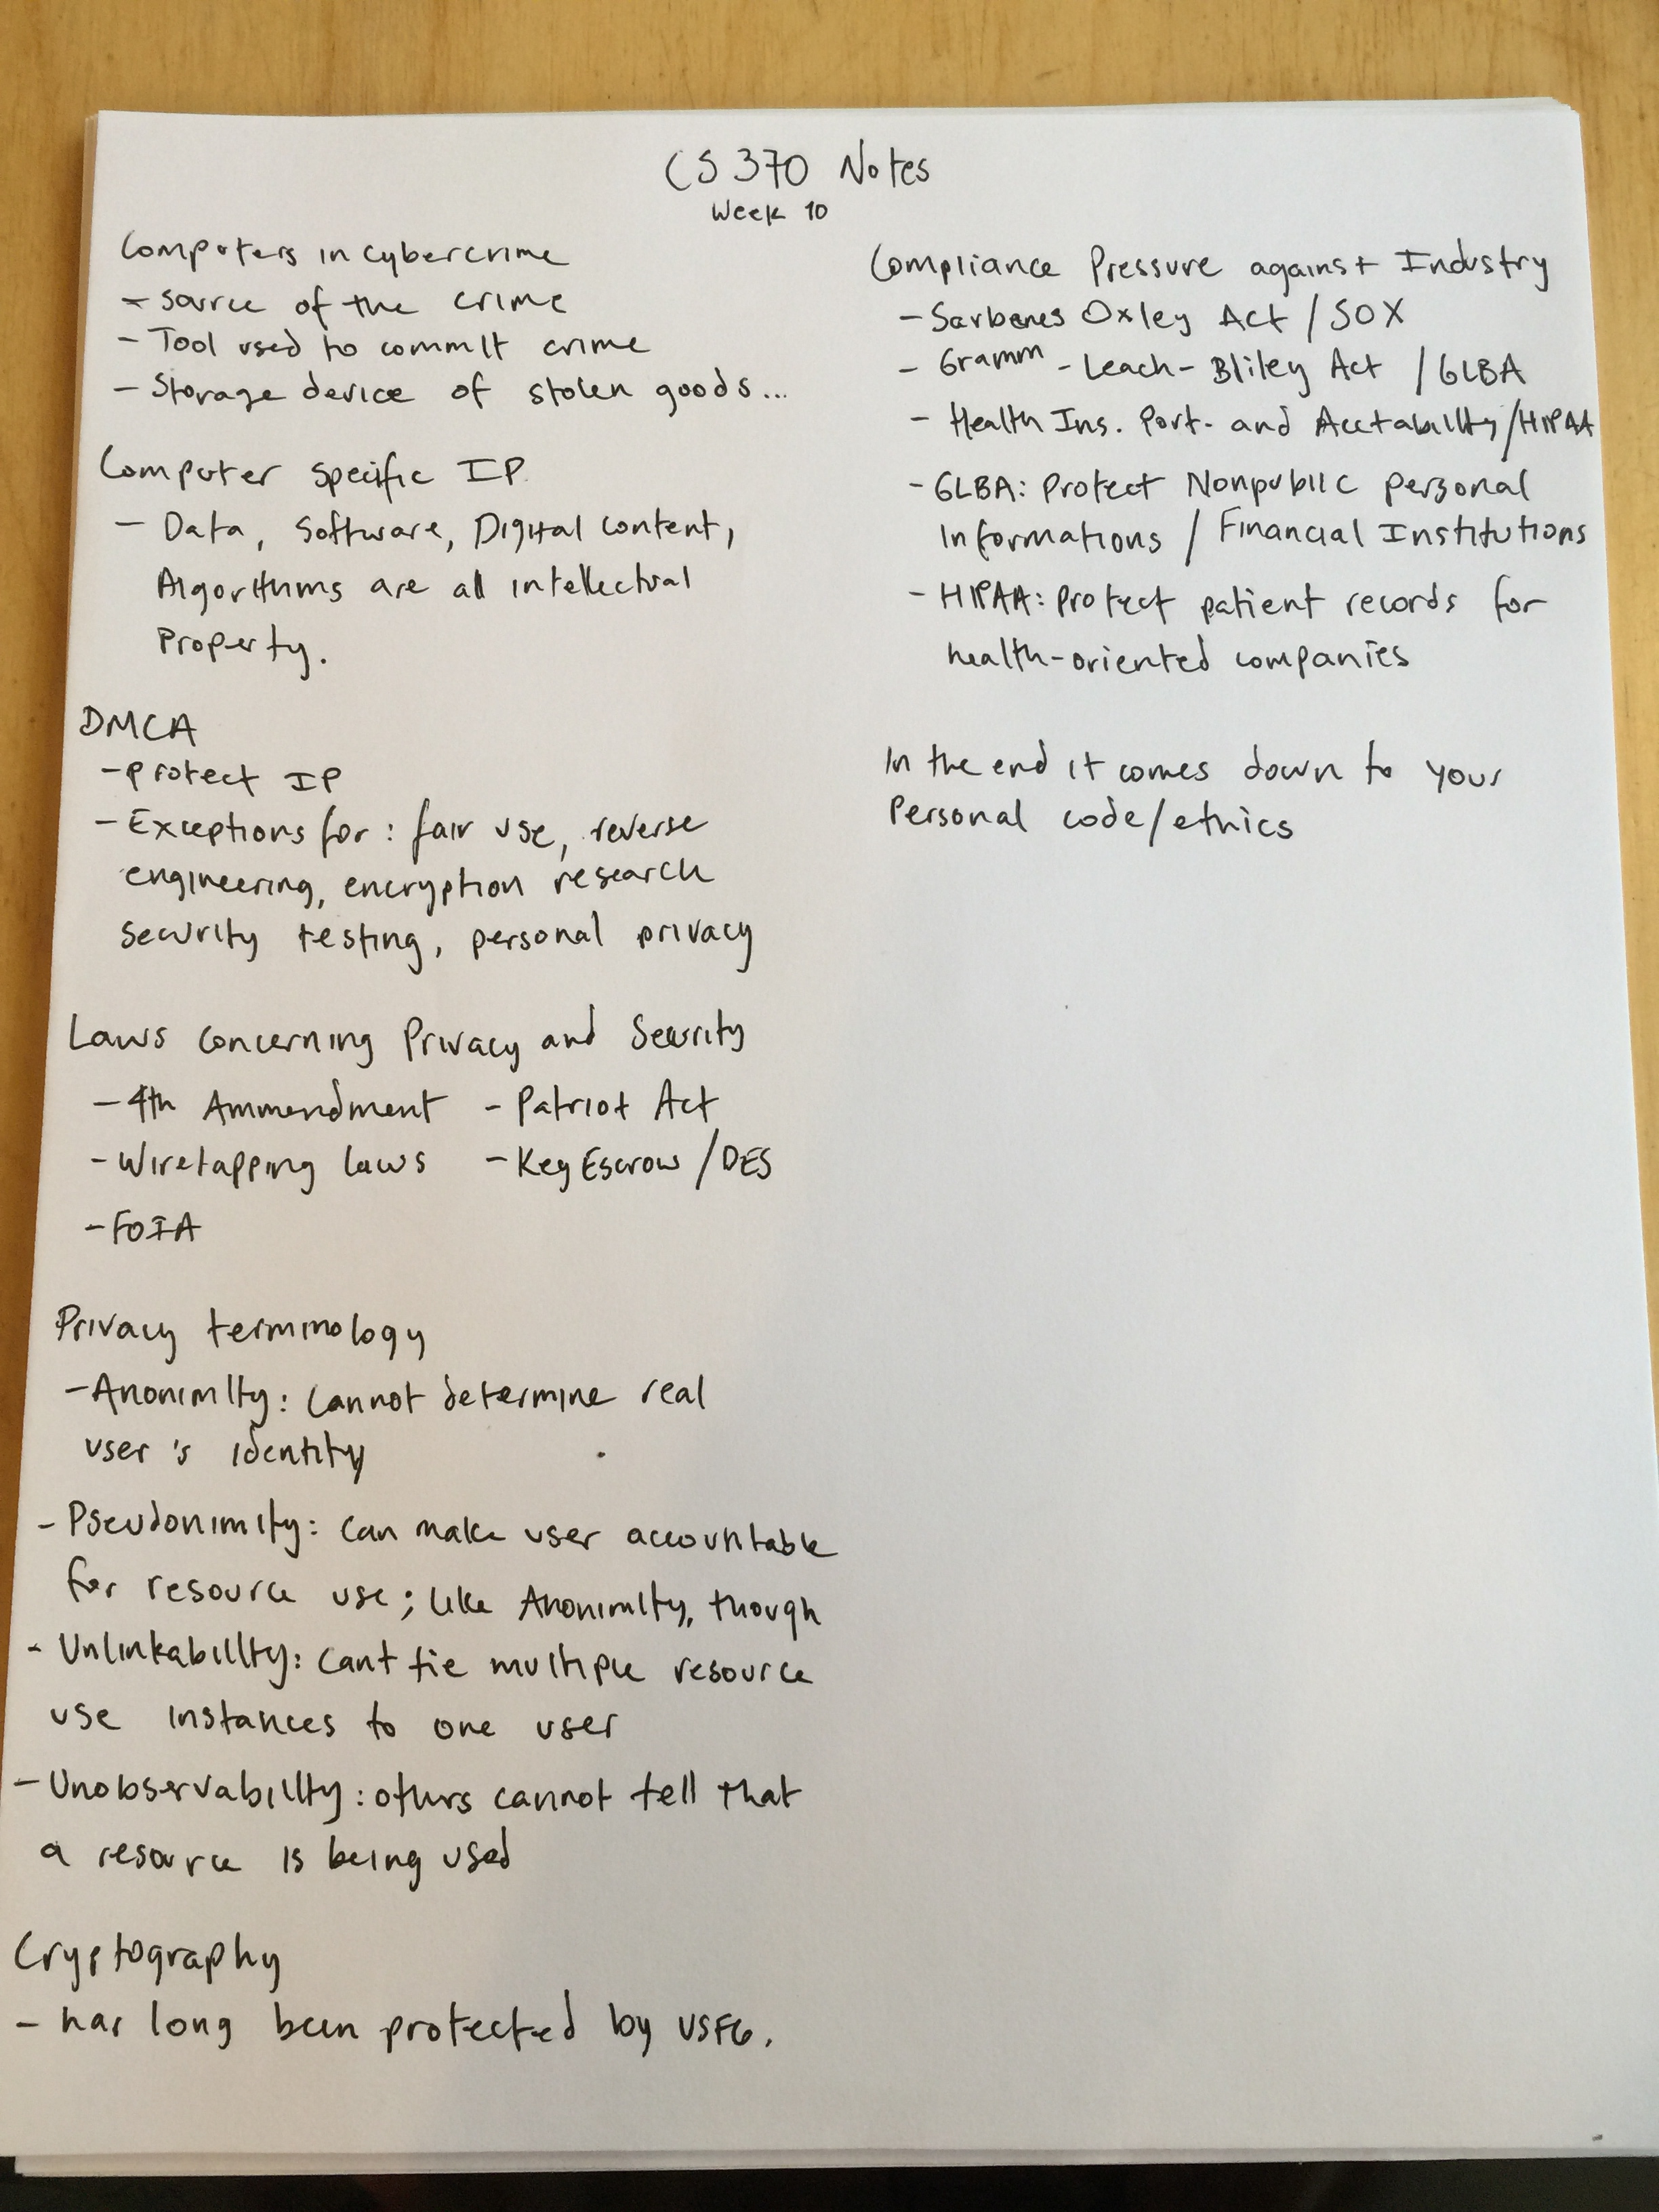 CS 370 Notes
Week 10
Computers in cybercrime
- source of the crime
- Tool used to commit crime
- Storage device of stolen goods...
Computer Specific IP
- Data, Software, Digital content,
Algorithms are all intellectual
Property.
DMCA
- protect IP
- Exceptions for: fair use, reverse
engineering, encryption research
security testing, personal privacy
Laws concerning Privacy and Security
- 4th Ammendment - Patriot Act
- Wiretapping laws - Key Escrow / DES
- FOIA
Privacy terminology
- Anonimity: cannot determine real
user's identity
- Pseudonimity: can make user accountable
for resource use; like Anonimity, though
- Unlinkability: cant tie multiple resource
use instances to one user
- Unobservability: others cannot tell that
a resource is being used
Cryptography
- has long been protected by USFG.
Compliance Pressure against Industry
- Sarbenes Oxley Act / SOX
- Gramm-Leach-Bliley Act / GLBA
- Health Ins. Port. and Acctability/HIPAA
- GLBA: Protect Nonpublic personal
Informations / Financial Institutions
- HIPAA: protect patient records for
health-oriented companies
In the end it comes down to your
Personal code/ethics